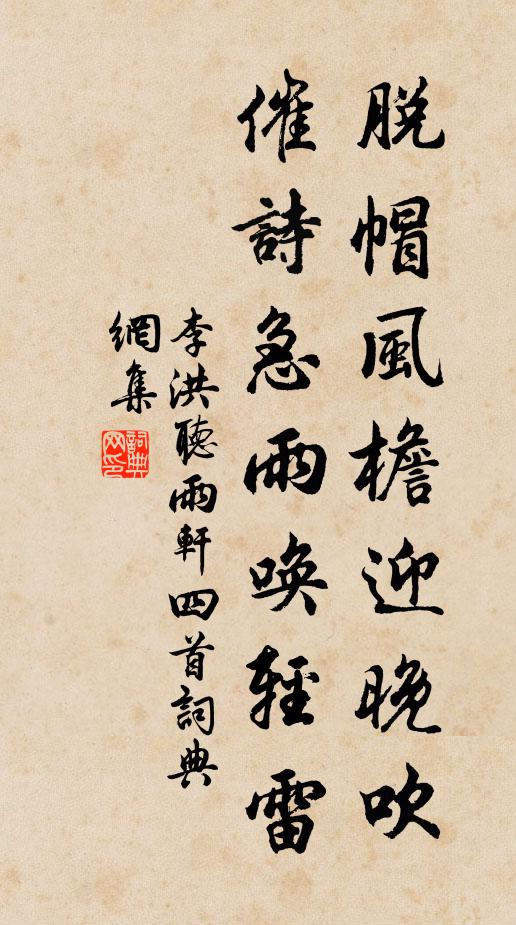 脫帽風檐迎晚吹
催詩急雨喚輕雷
李洪聽雨軒四首詞典
網集
詞典
网印